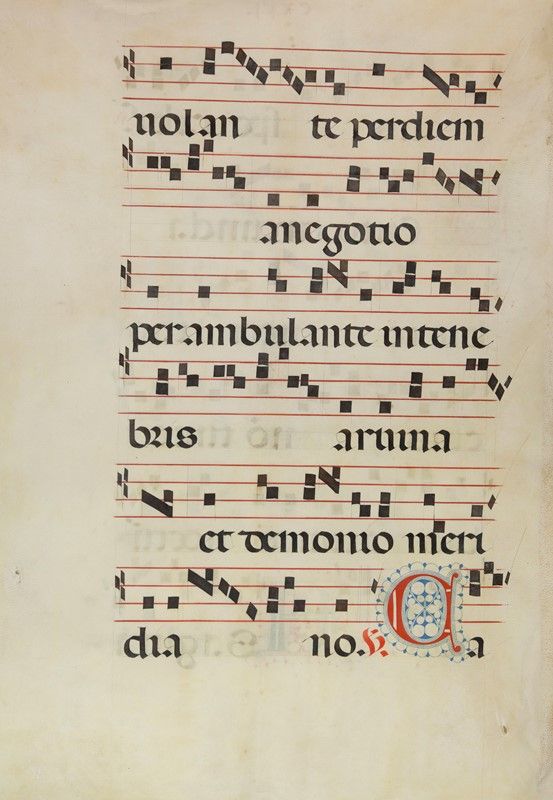 uolan te perdiem
anegotio
perambulante intene
bris aruina
et demonio meri
dia no. ℣. Ca